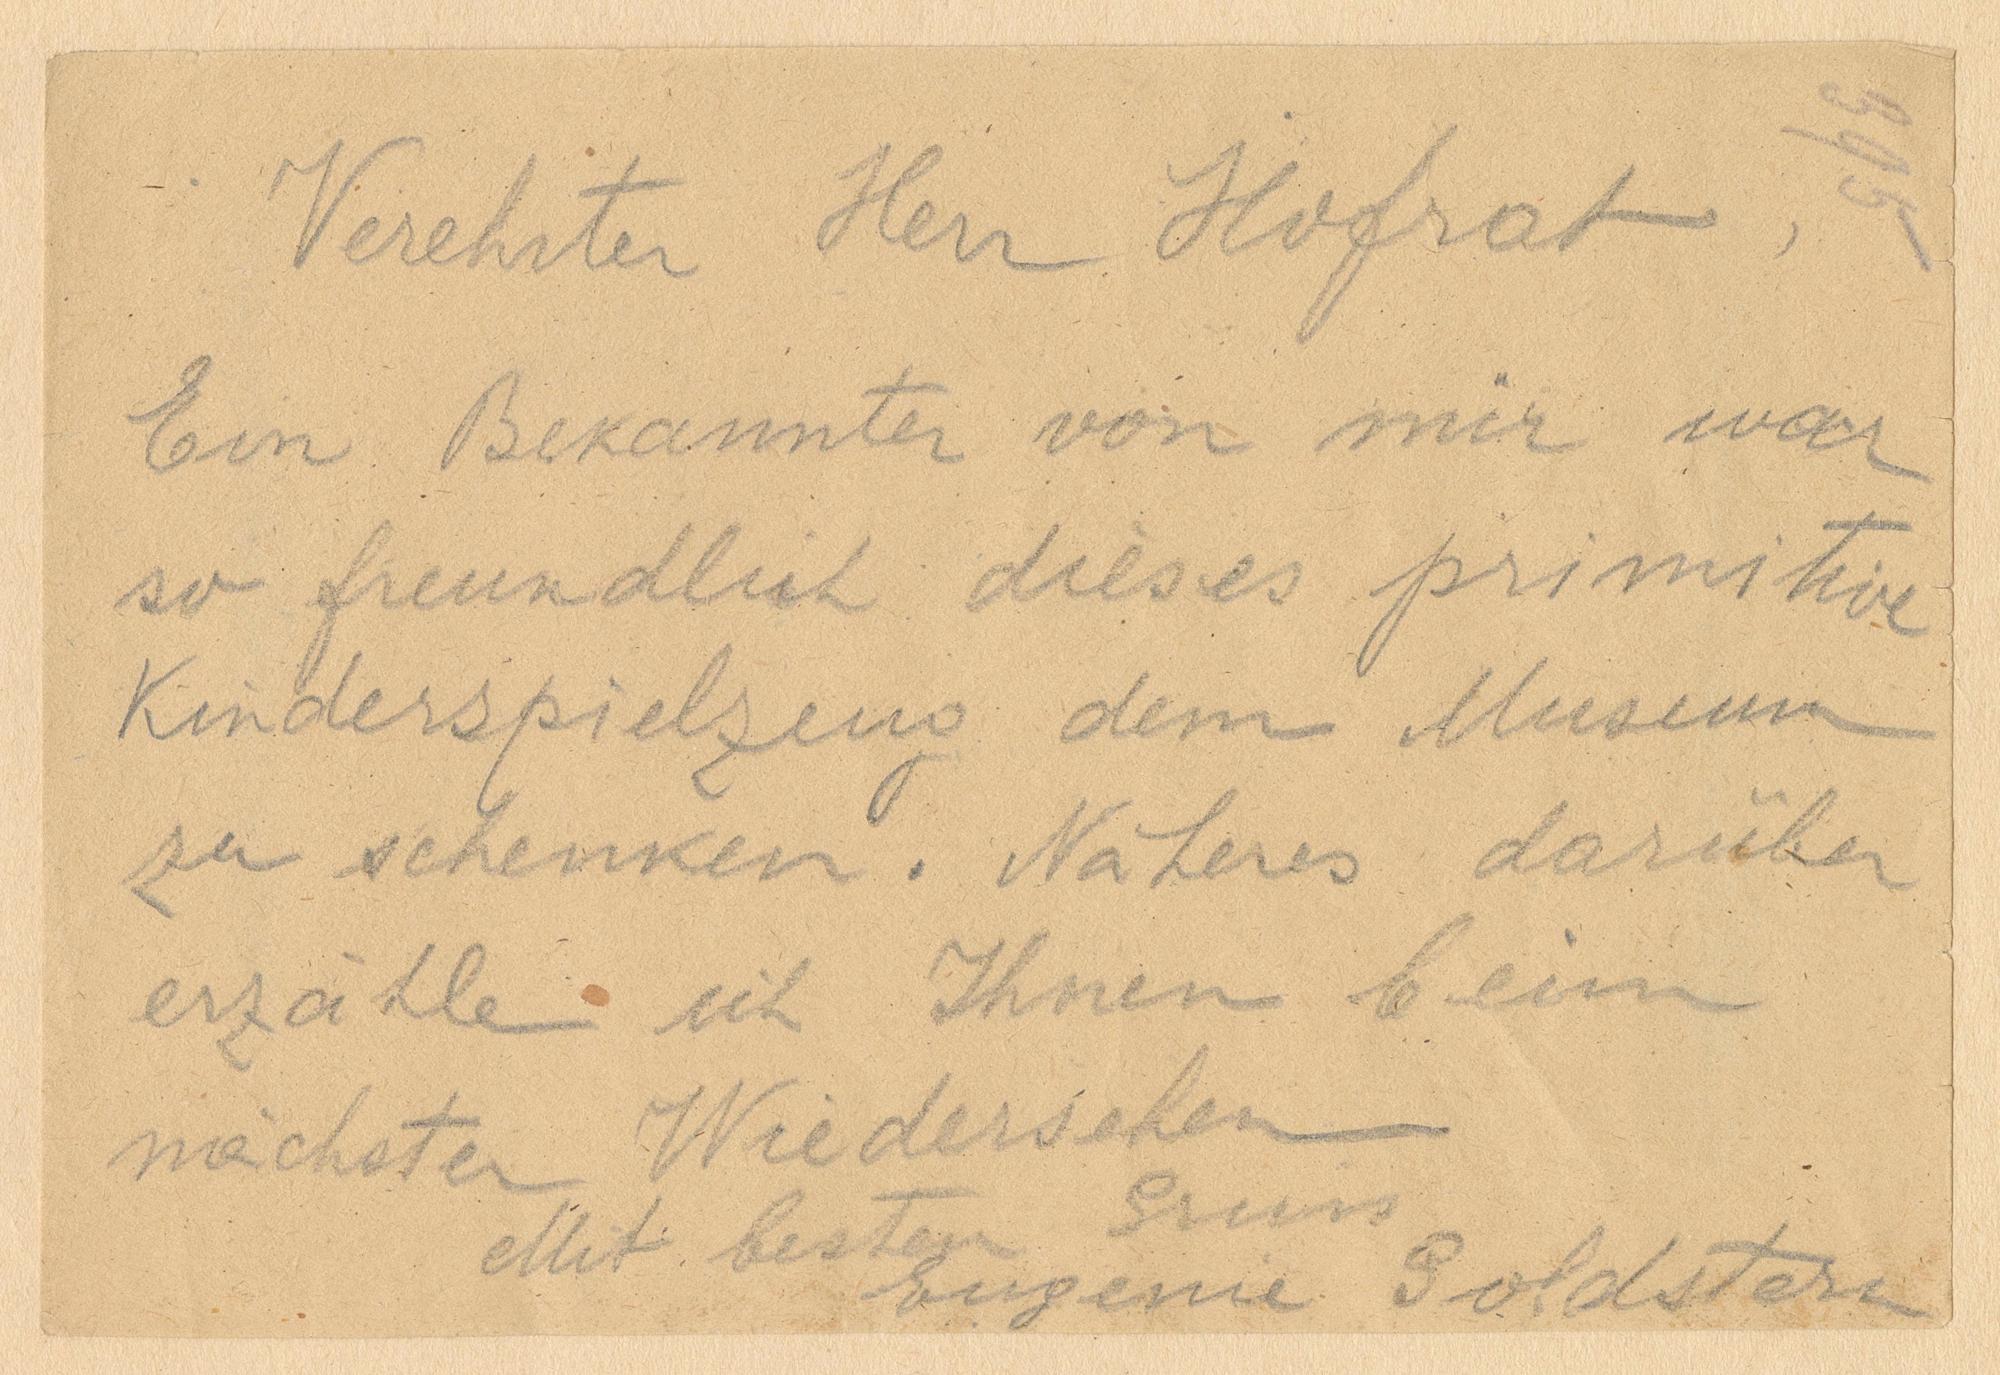 Verehrter Herr Hofrat,
Ein Bekannter von mir war
so freundlich dieses primitive
Kinderspielzeug dem Museum
zu schenken. Näheres darüber
erzähle ich Ihnen beim
nächsten Wiedersehen
Mit besten Gruss
Eugenie Goldstern